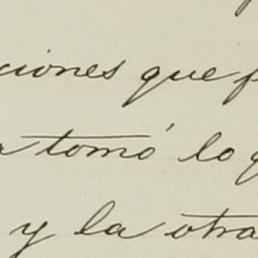 ciones que p
a tomó lo q
y la otra